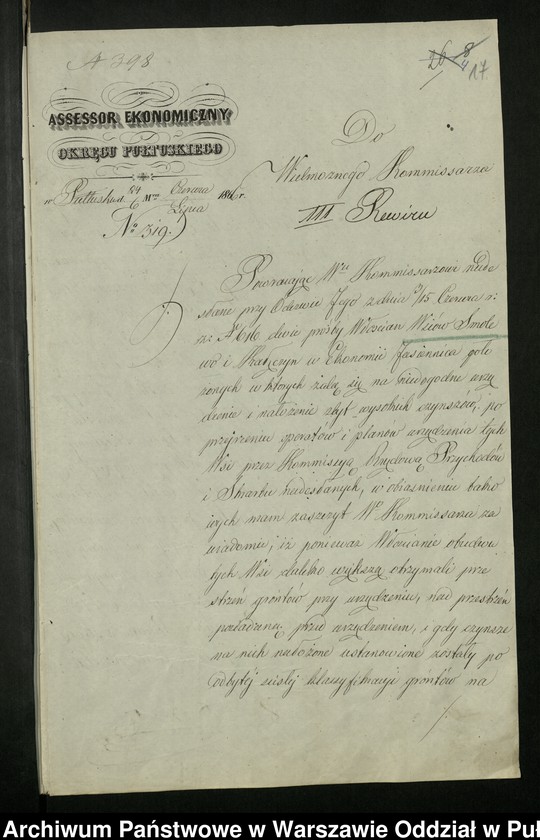 N 398
26 8/4 17
ASSESSOR EKONOMICZNY
OKRĘGU PUŁTUSKIEGO
w Pułtusku d. 24 Czerwca
6 Mca Lipca 186 r.
No 519.
Do
Wielmożnego Kommissarza
III Rewiru
Powracając Wmu Kommissarzowi nade
słane przy Odezwie Jego z dnia 3/15 Czerwca r:
b: N 616 dwie prośby Włościan Wsiów Smole
wo i Kałęczyn w Ekonomii Jasienica poło
żonych w których żalą się na niedogodne urzą
dzenie i nałożenie zbyt wysokich czynszów, po
przejrzeniu operatów i planów urządzenia tych
Wsi przez Kommissyą Rządową Przychodów
i Skarbu nadesłanych, w objaśnieniu tako
wych mam zaszczyt Wo Kommissarza za
wiadomić, iż ponieważ Włościanie obudwu
tych Wsi daleko większą otrzymali prze
strzeń gruntów przy urządzeniu, nad przestrzeń
posiadaną przed urządzeniem, i gdy czynsze
na nich nałożone ustanowione zostały po
odbytej ścisłej klassyfikacyi gruntów na
Archiwum Państwowe w Warszawie Oddział w Puł